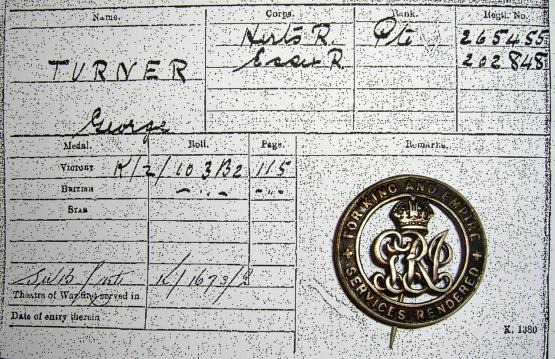 Name. Corps. Rank. Regtl. No.
Herts R. Pte 265455
TURNER Essex R. 202848
George
Medal. Roll. Page. Remarks.
VICTORY K/2/103B2 115
BRITISH
STAR
K/1673/2
Theatre of War first served in
Date of entry therein
K. 1380
FOR KING AND EMPIRE
SERVICES RENDERED